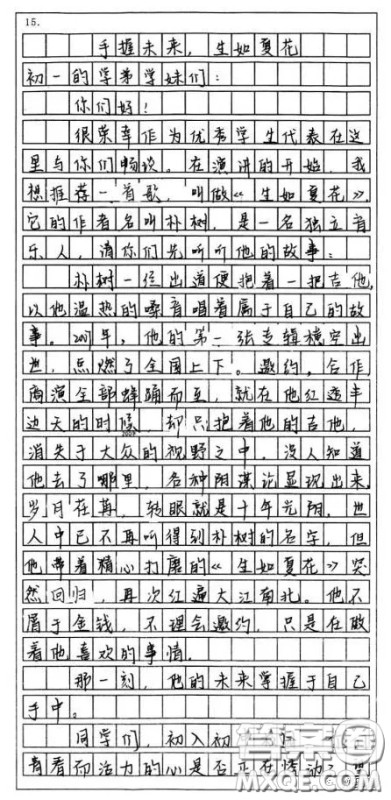 15.
手握未来，生如夏花
初一的学弟学妹们：
你们好！
很荣幸作为优秀学生代表在这
里与你们畅谈。在演讲的开始，我
想推荐一首歌，叫做《生如夏花》，
它的作者名叫朴树，是一名独立音
乐人，请你们先听听他的故事：
朴树一经出道便抱着一把吉他，
以他温热的嗓音唱着属于自己的故
事。年，他的第一张专辑横空出
世，点燃了全国上下。邀约。合作，
商演全部蜂踊而至，就在他红透半
边天的时候，却只抱着他的吉他，
消失于大众的视野之中，没人知道
他去了哪里，各种阴谋论显现出来，
岁月在苒，转眼就是十年光阴，世
人中已不再听得到朴树的名字，但
他带着精心打磨的《生如夏花》突
然回归，再次红遍大江南北。他不
属于金钱，不理会邀约，只是在做
着他喜欢的事情。
那一刻，他的未来掌握于自己
手中。
同学们，初入初
青看你活力的心是否正在悸动？
答案圈
MXQE.COM